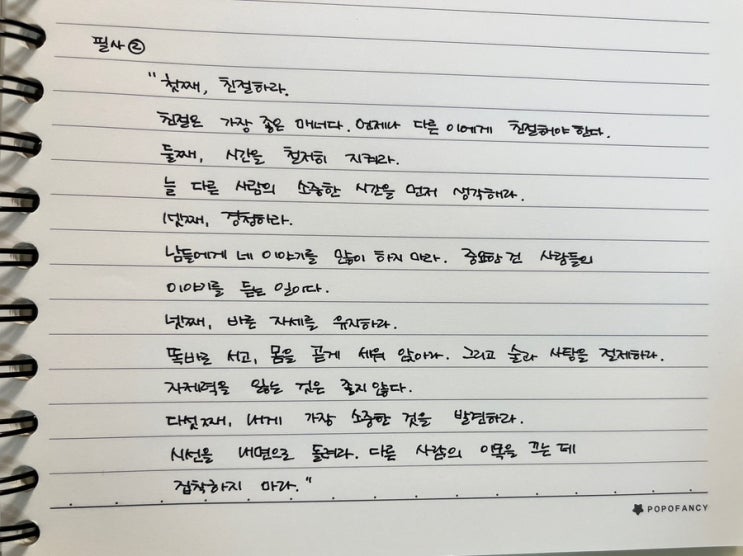 필사②
"첫째, 친절하라.
친절은 가장 좋은 매너다. 언제나 다른 이에게 친절해야 한다.
둘째, 시간을 철저히 지켜라.
늘 다른 사람의 소중한 시간을 먼저 생각해라.
경청하라.
남들에게 네 이야기를 많이 하지 마라. 중요한 건 사람들의
이야기를 듣는 일이다.
넷째, 바른 자세를 유지하라.
똑바로 서고, 몸을 곧게 세워 앉아라. 그리고 술과 사탕을 절제하라.
자제력을 잃는 것은 좋지 않다.
다섯째, 네게 가장 소중한 것을 발견하라.
시선을 내면으로 돌려라. 다른 사람의 이목을 끄는 데
집착하지 마라."
POPOFANCY